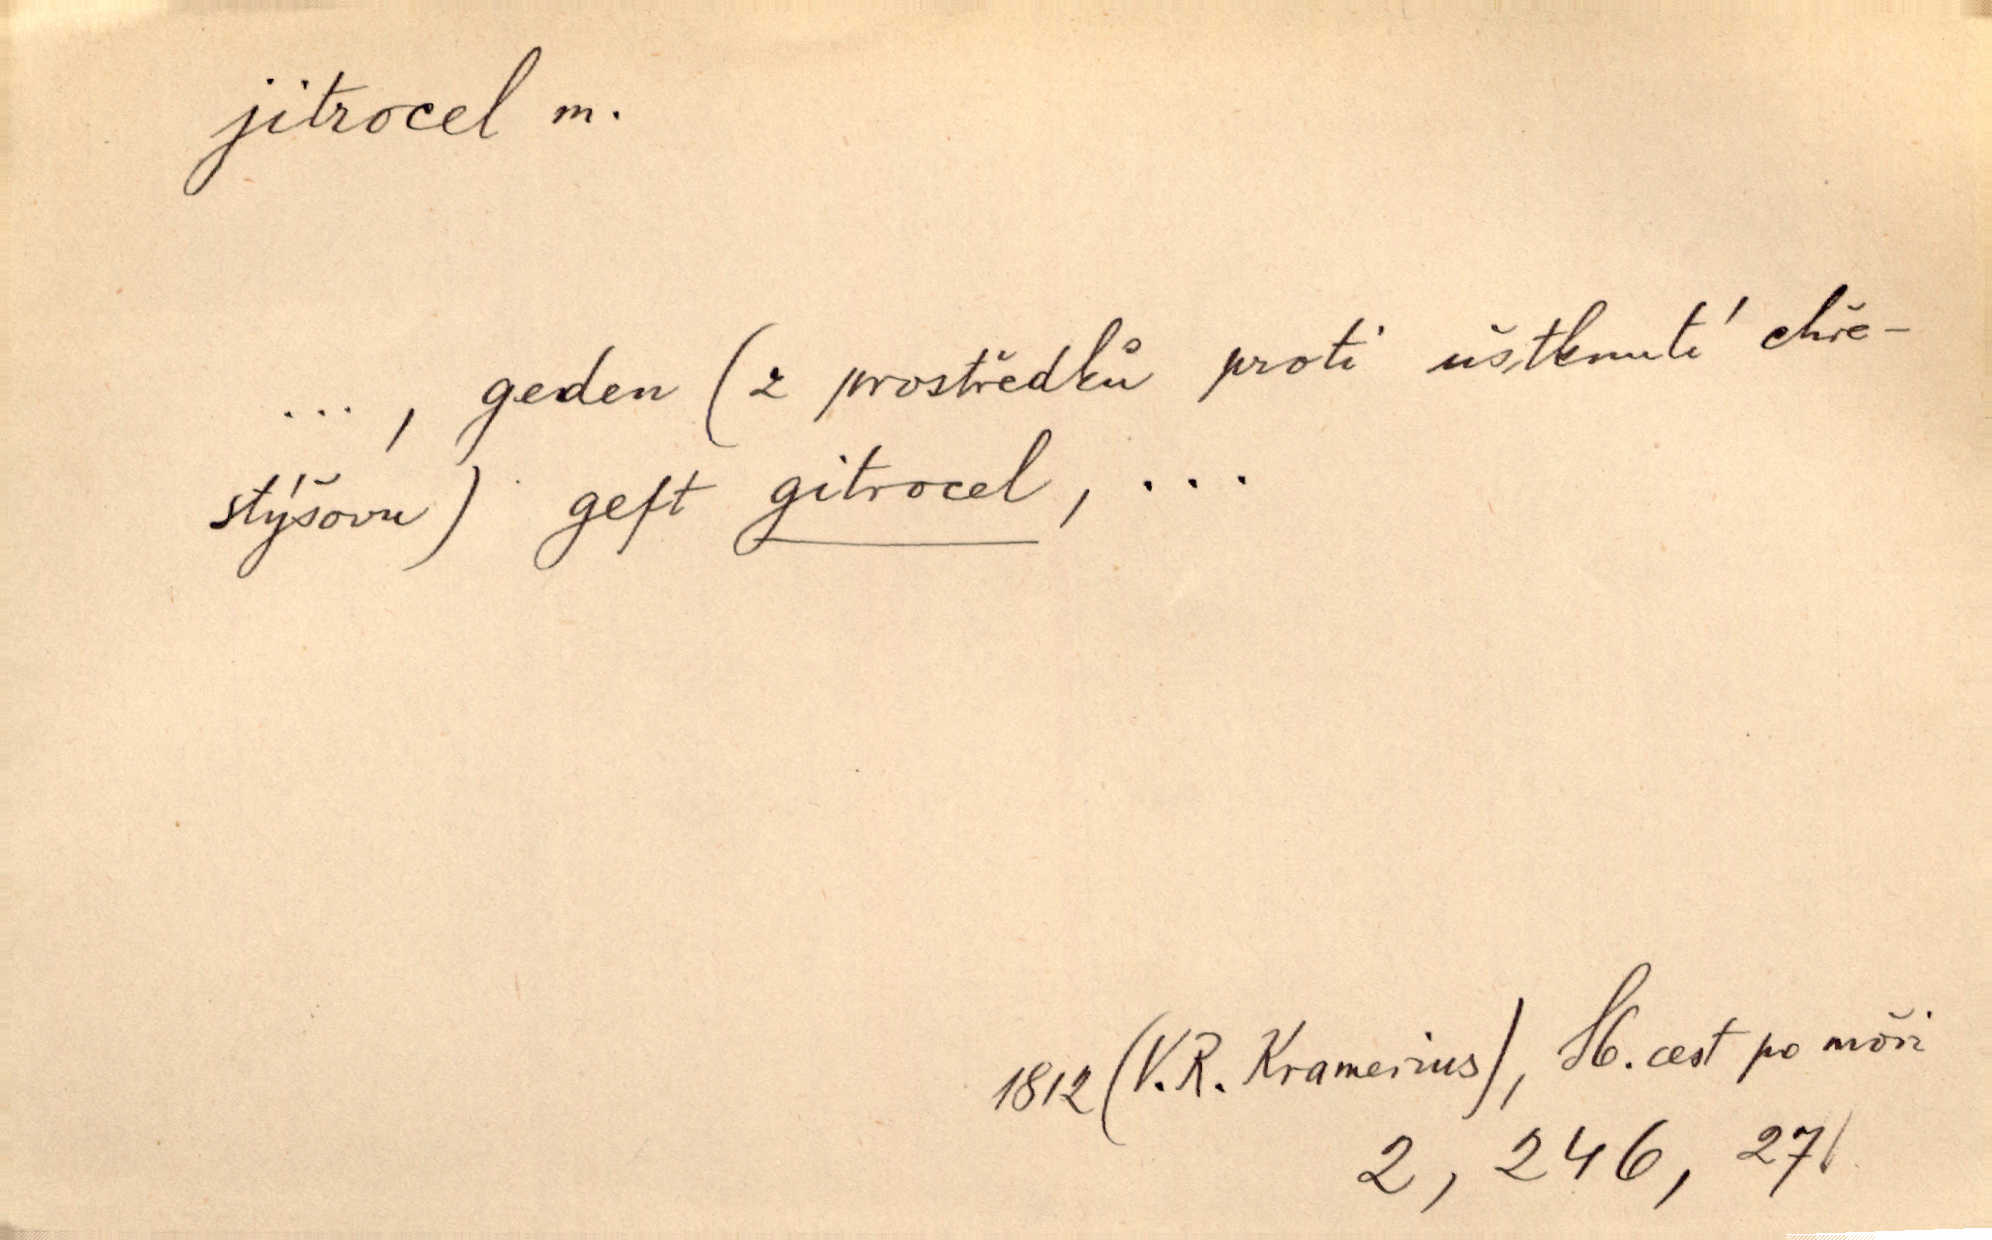 jitrocel m.
..., geden (z prostředků proti uštknutí chře-
stýšovu) geſt gitrocel, ...
1812 (V. R. Kramerius), H. cest po moři
2, 246, 27